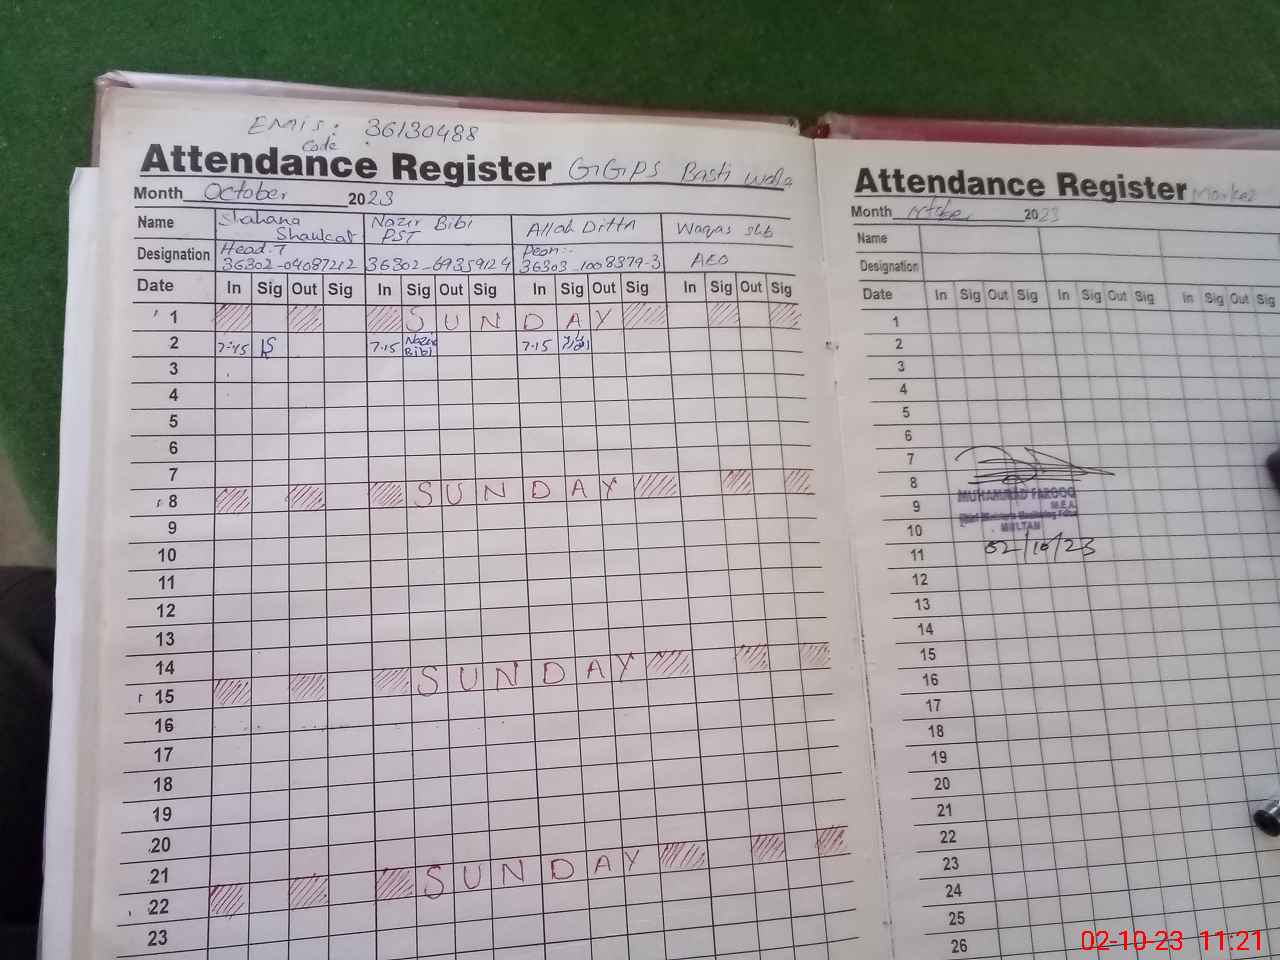 EMIS: 36130488
Code
Attendance Register GGPS Basti
Month October 2023
Name Shahana Shaukat Nazir Bibi PST Allah Ditta Waqas shb
Designation Head.T 36302-04087212 36302-69359124 Peon:- 36303-1008379-3 AEO
Date In Sig Out Sig In Sig Out Sig In Sig Out Sig In Sig Out Sig
1 SUNDAY
2 7:45 7.15 Nazir Bibi 7.15
3
4
5
6
7
8 SUNDAY
9
10
11
12
13
14
15 SUNDAY
16
17
18
19
20
21
22 SUNDAY
23
Attendance Register Markez
Month October 2023
Name
Designation
Date In Sig Out Sig In Sig Out Sig In Sig
1
2
3
4
5
6
7
8
9
10
11
12
13
14
15
16
17
18
19
20
21
22
23
24
25
26
MUHAMMAD FAROOQ
M.E.A
Chief Minister's Monitoring Force
MULTAN
02/10/23
02-10-23 11:21